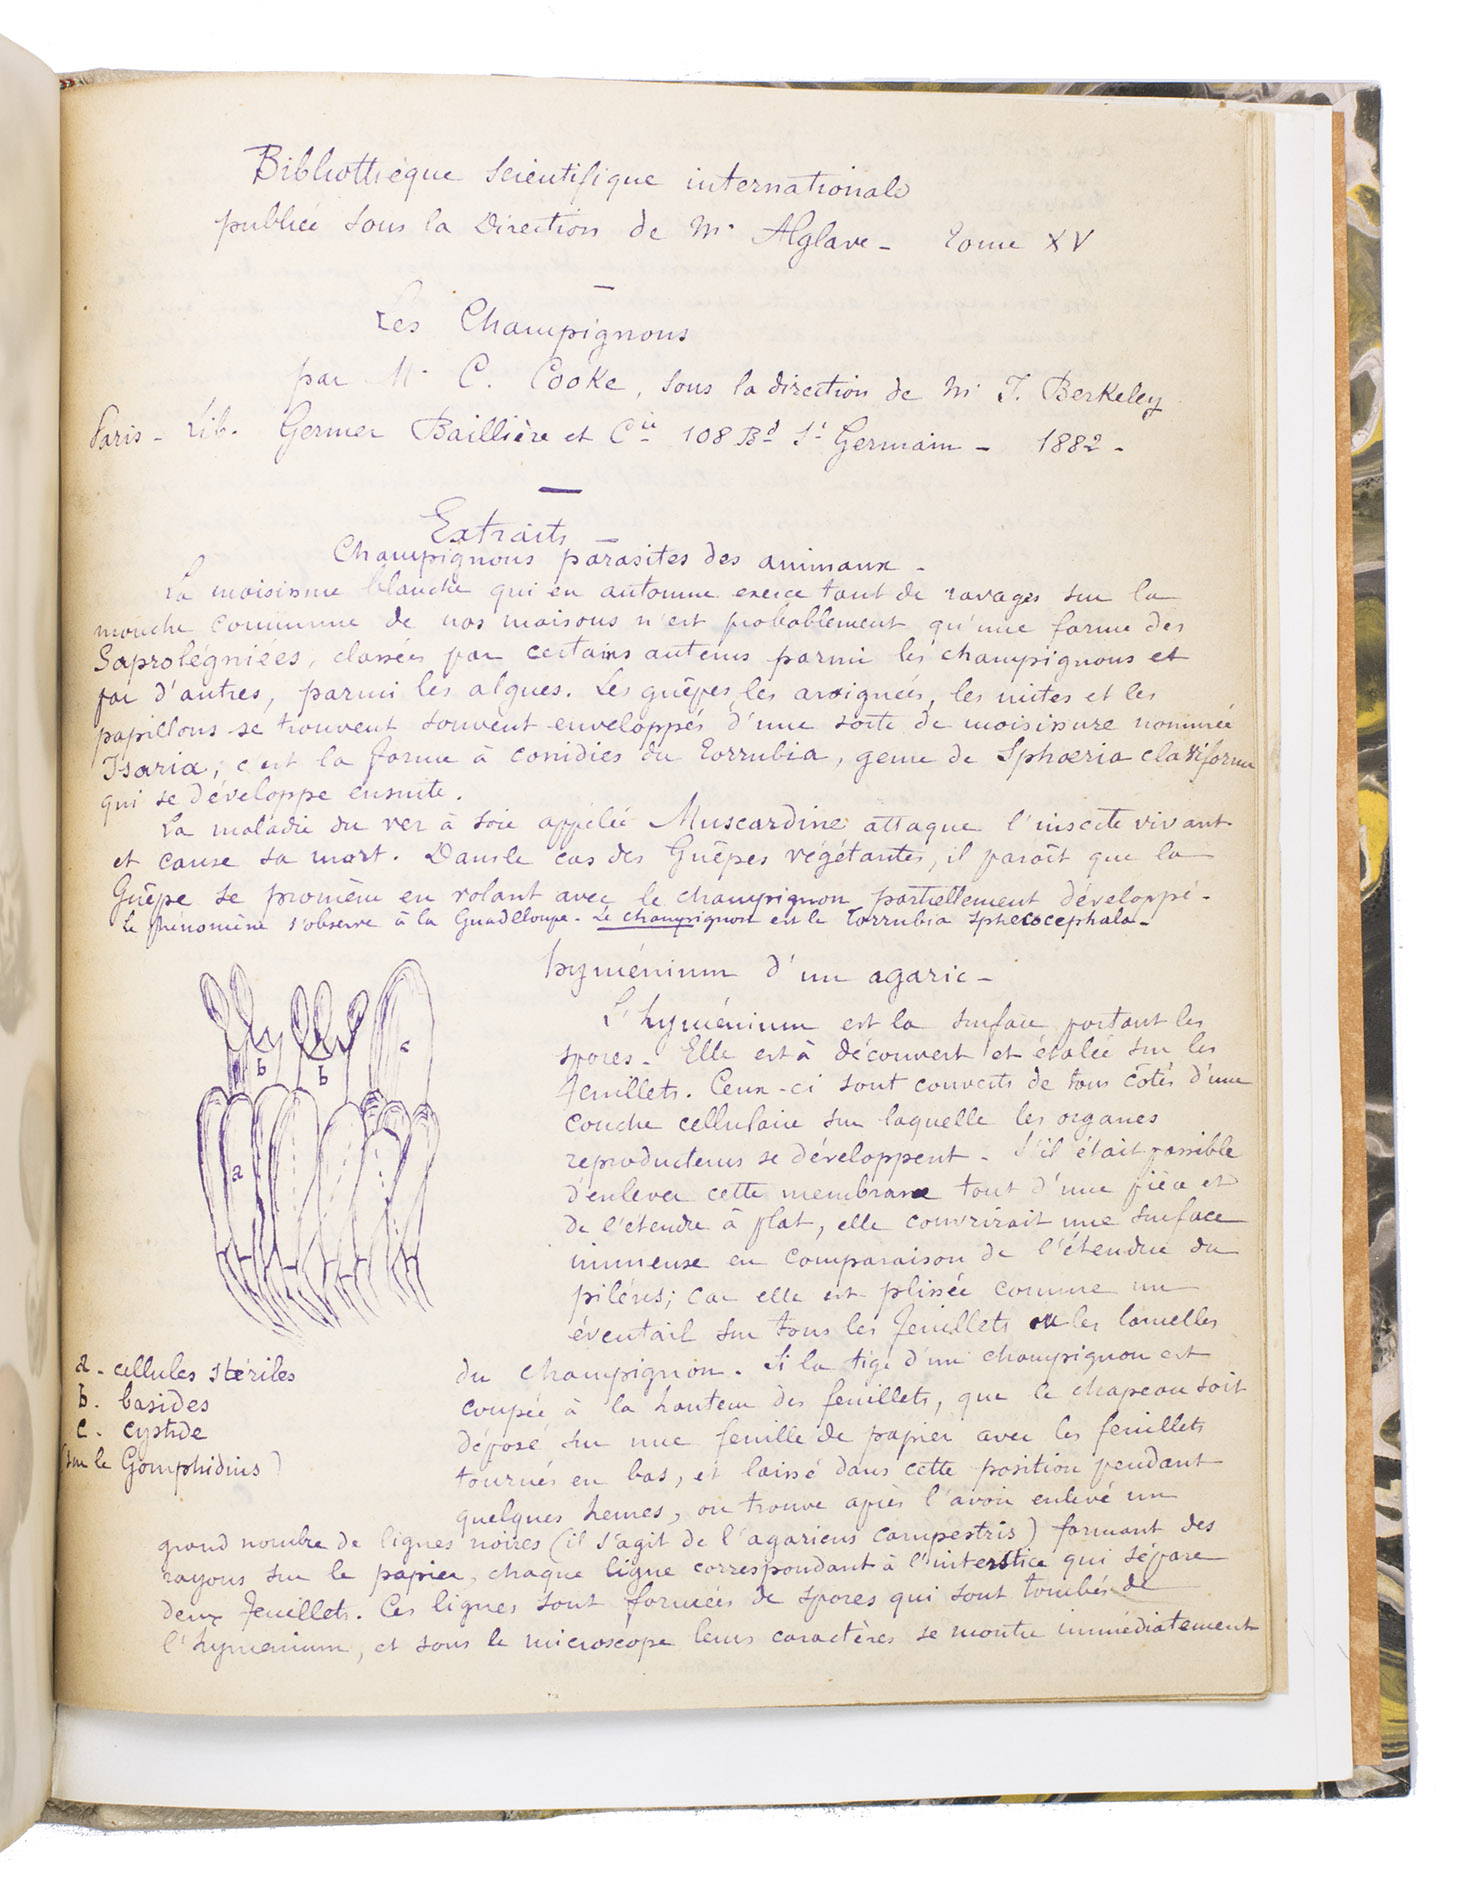 Bibliothèque scientifique internationale
publiée sous la Direction de Mr Alglave - Tome XV
Les Champignons
par M. C. Cooke, sous la direction de M. J. Berkeley
Paris - Lib. Germer Baillière et Cie 108 Bd St Germain - 1882 -
Extraits
Champignons parasites des animaux -
La moisissure blanche qui en automne exerce tant de ravages sur la
mouche commune de nos maisons n'est probablement qu'une forme des
Saprolegniées, classées par certains auteurs parmi les champignons et
par d'autres, parmi les algues. Les guêpes, les araignées, les mites et les
papillons se trouvent souvent enveloppés d'une sorte de moisissure nommée
Isaria; c'est la forme à conidies du Torrubia, genre de Sphoeria claviforme
qui se développe ensuite.
La maladie du ver à soie appelée Muscardine attaque l'insecte vivant
et cause sa mort. Dans le cas des Guêpes végétantes, il paraît que la
Guêpe se promène en volant avec le champignon partiellement développé -
Le phénomène s'observe à la Guadeloupe - Le champignon est le Torrubia sphecocephala -
hyménium d'un agaric -
L'hyménium est la surface portant les
spores - Elle est à découvert et étalée sur les
feuillets. Ceux-ci sont couverts de tous côtés d'une
couche cellulaire sur laquelle les organes
reproducteurs se développent - S'il était possible
d'enlever cette membrane tout d'une pièce et
de l'étendre à plat, elle couvrirait une surface
immense en comparaison de l'étendue du
piléus; car elle est plissée comme un
éventail sur tous les feuillets ou les lamelles
du champignon. Si la tige d'un champignon est
coupée à la hauteur des feuillets, que le chapeau soit
déposé sur une feuille de papier avec les feuillets
tournés en bas, et laissé dans cette position pendant
quelques heures, on trouve après l'avoir enlevé un
grand nombre de lignes noires (il s'agit de l'agaricus campestris) formant des
rayons sur le papier, chaque ligne correspondant à l'interstice qui sépare
deux feuillets. Ces lignes sont formées de spores qui sont tombés de
l'hymenium, et sous le microscope leurs caractères se montre immédiatement
b
b
c
a
a - cellules stériles
b. basides
c. cystide
(sur le Gomphidius)